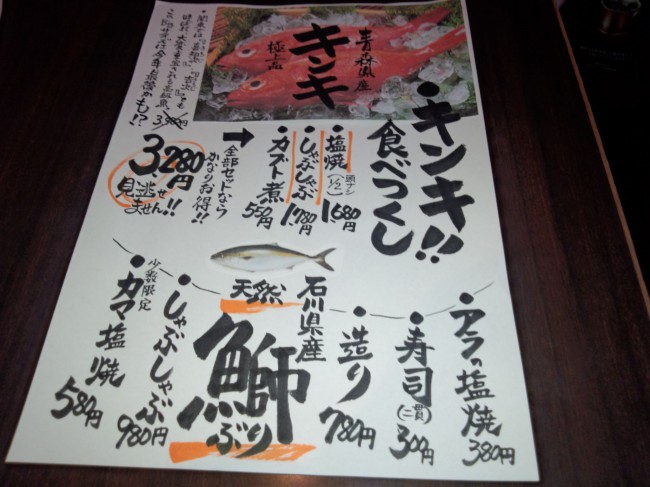 ・キンキ!!
食べつくし
青森県産
キンキ
極上品
・塩焼(1/2)頭ナシ 1680円
・しゃぶしゃぶ 1780円
・カブト煮 550円
→全部セットなら
かなりお得!!
3,980円
3,280円
見逃せ
ません!!
・アラの塩焼 380円
・寿司(二貫) 300円
・造り 780円
石川県産
天然
鰤
ぶり
・しゃぶしゃぶ 980円
少数限定
・カマ塩焼 580円